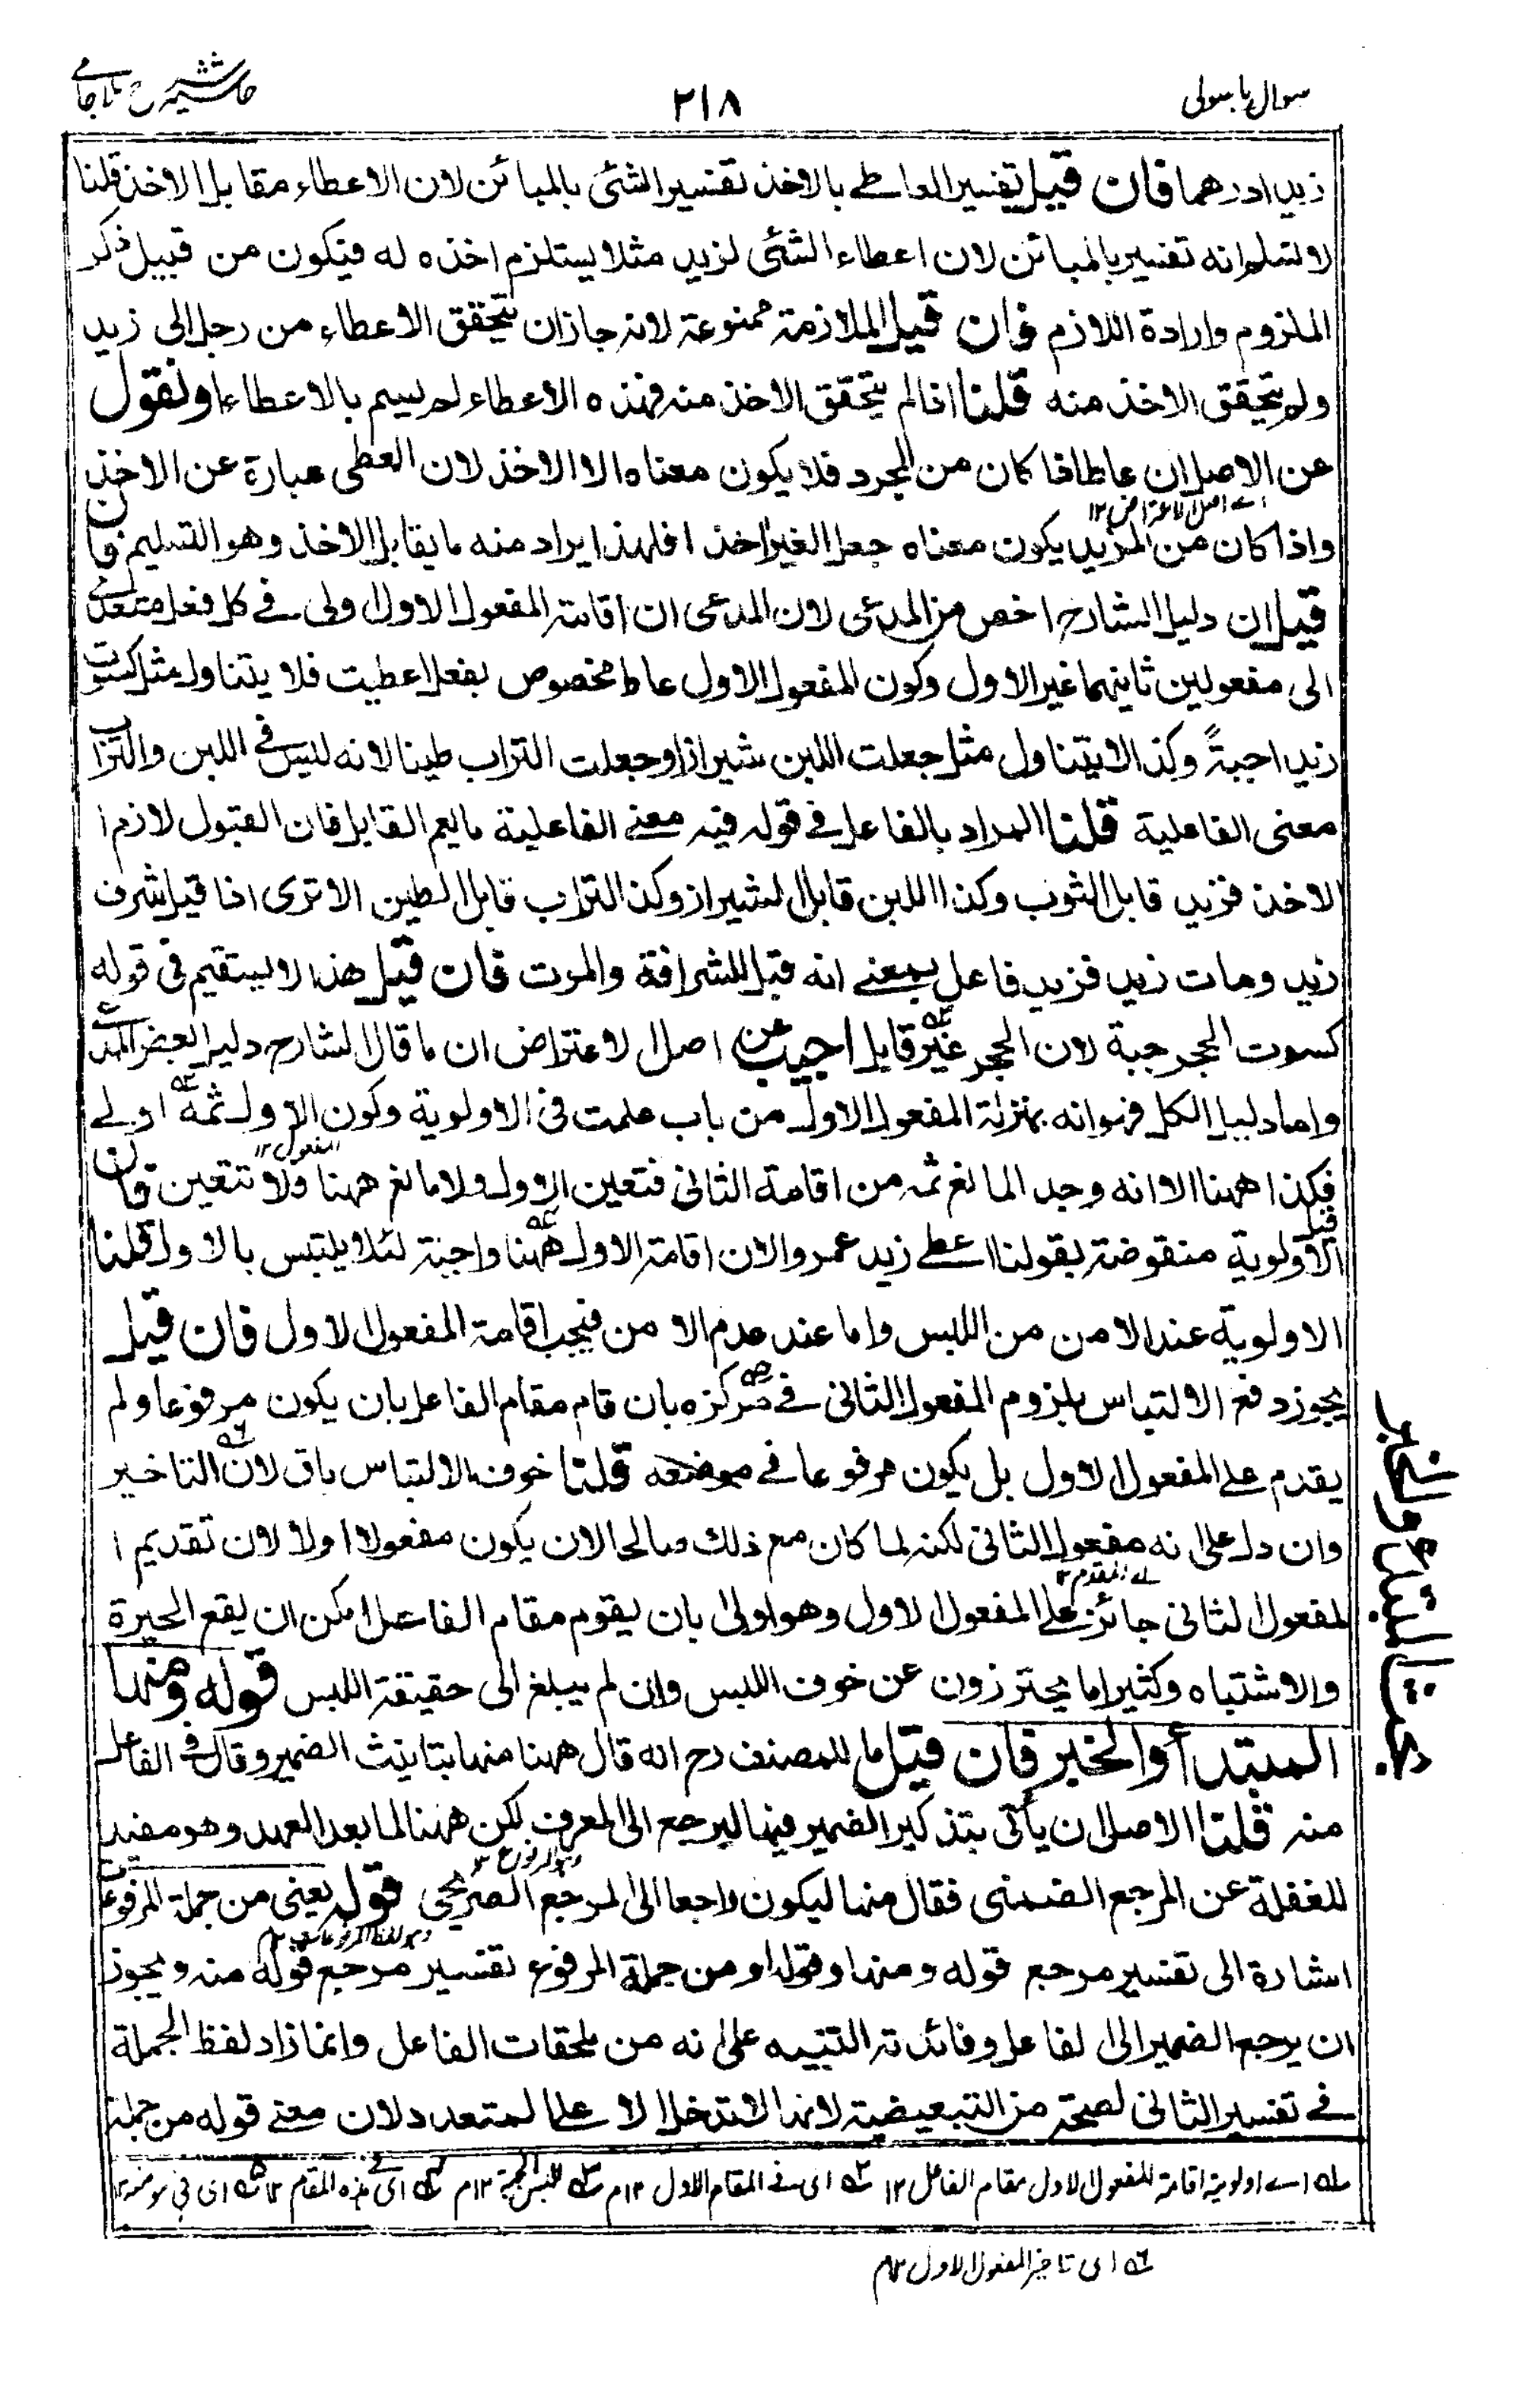 سوال باسولی
٢١٨
حاشیہ شرح ملا جامی
زيدا درهما فان قيل تفسير العاطے بالاخذ تفسير الشئ بالمبائن لان الاعطاء مقابل الاخذ قلنا
لا نسلم انه تفسير بالمبائن لان اعطاء الشئى لزيد مثلا يستلزم اخذه له فيكون من قبيل ذكر
الملزوم وارادة اللازم فان قيل الملازمة ممنوعة لانه جاز ان يتحقق الاعطاء من رجل الى زيد
ولم يتحقق الاخذ منه قلنا اذا لم يتحقق الاخذ منه فهذه الاعطاء لم يسم بالاعطاء او نقول
عن الاصل ان عاطا اذا كان من المجرد فلا يكون معناه الا الاخذ لان العطى عبارة عن الاخذ
اے اصل الاعتراض ١٢
واذا كان من المزيد يكون معناه جعل الغير اخذا فلهذا يراد منه ما يقابل الاخذ وهو التسليم فان
قيل ان دليل الشارح اخص من المدعى لان المدعى ان اقامة المفعول الاول اولى فے كل فعل متعدے
الى مفعولين ثانيهما غير الاول وكون المفعول الاول عاطا مخصوص بفعل اعطيت فلا يتناول مثل كسوت
زيدا جبةً وكذا لا يتناول مثل جعلت اللبن شيرازا وجعلت التراب طينا لانه ليس فے اللبن والتراب
معنى الفاعلية قلنا المراد بالفاعل فے قوله فيه معنے الفاعلية ما يعم القابل فان القبول لازم ا
الاخذ فزيد قابل الثوب وكذا اللبن قابل الشيراز وكذ التراب قابل الطين الا ترى اذا قيل شرف
زيد ومات زيد فزيد فاعل بمعنے انه قبل للشرافة والموت فان قيل هذا لا يستقيم فى قوله
كسوت الحجر جبة لان الحجر غير قابل اجيب عن اصل الاعتراض ان ما قال الشارح دليل لبعض المدعے
واما دليل الكل فهو انه بمنزلة المفعول الاول من باب علمت فى الاولوية وكون الاول ثمه اولے
المفعول ١٢
فكذا ههنا الا انه وجد المانع ثمه من اقامة الثانى فتعين الاول ولا مانع ههنا ولا تتعين فان
قيل الاولوية منقوضة بقولنا اعطے زيد عمروا لان اقامة الاول ههنا واجبة لئلا يلتبس بالاول قلنا
الاولوية عند الامن من اللبس واما عند عدم الامن فيجب اقامة المفعول الاول فان قيل
يجوز دفع الالتباس بلزوم المفعول الثانى فے مركزه بان قام مقام الفاعل بان يكون مرفوعا ولم
يقدم علے المفعول الاول بل يكون مرفوعا فے موضعه قلنا خوف الالتباس باق لان التاخير
وان دل على انه مفعول الثانى لكنه لما كان مع ذلك صالحا لان يكون مفعولا اولا لان تقديم ا
اے المقدم ١٢
لمفعول الثانى جائز علے المفعول الاول وهو اولى بان يقوم مقام الفاعل امكن ان يقع الحيرة
والاشتباه وكثيرا ما يحترزون عن خوف اللبس وان لم يبلغ الى حقيقة اللبس قوله ومنها
المبتدأ والخبر فان قيل ما للمصنف رح انه قال ههنا منها بتانيث الضمير وقال فے الفاعل
منه قلنا الاصل ان يأتى بتذكير الضمير فيهما ليرجع الى المعرف لكن ههنا لما بعد العهد وهو مفيد
وهو المرفوع ١٢
للغفلة عن المرجع الضمنى فقال منها ليكون راجعا الى المرجع الصريحى قوله يعنى من جملة المرفوعات
اشارة الى تفسير مرجع قوله ومنها وقوله او من جملة المرفوع تفسير مرجع قوله منه ويجوز
ان يرجع الضمير الى الفاعل وفائدته التنبيه على انه من ملحقات الفاعل وانما زاد لفظ الجملة
فے تفسير الثانى لصحة من التبعيضية لانها لا تدخل الا علے المتعدد لان معنے قوله من جملة
بحث المبتدأ والخبر
لہ اے اولوية اقامة المفعول الاول مقام الفاعل ١٢ ٢ہ اى فے المقام الاول ١٢م ٣ہ للبس الجبة ١٢م ٤ہ اى فے هذه المقام ١٢ ٥ہ اى فى موضعه ١٢
٦ہ اى تاخير المفعول الاول ١٢م